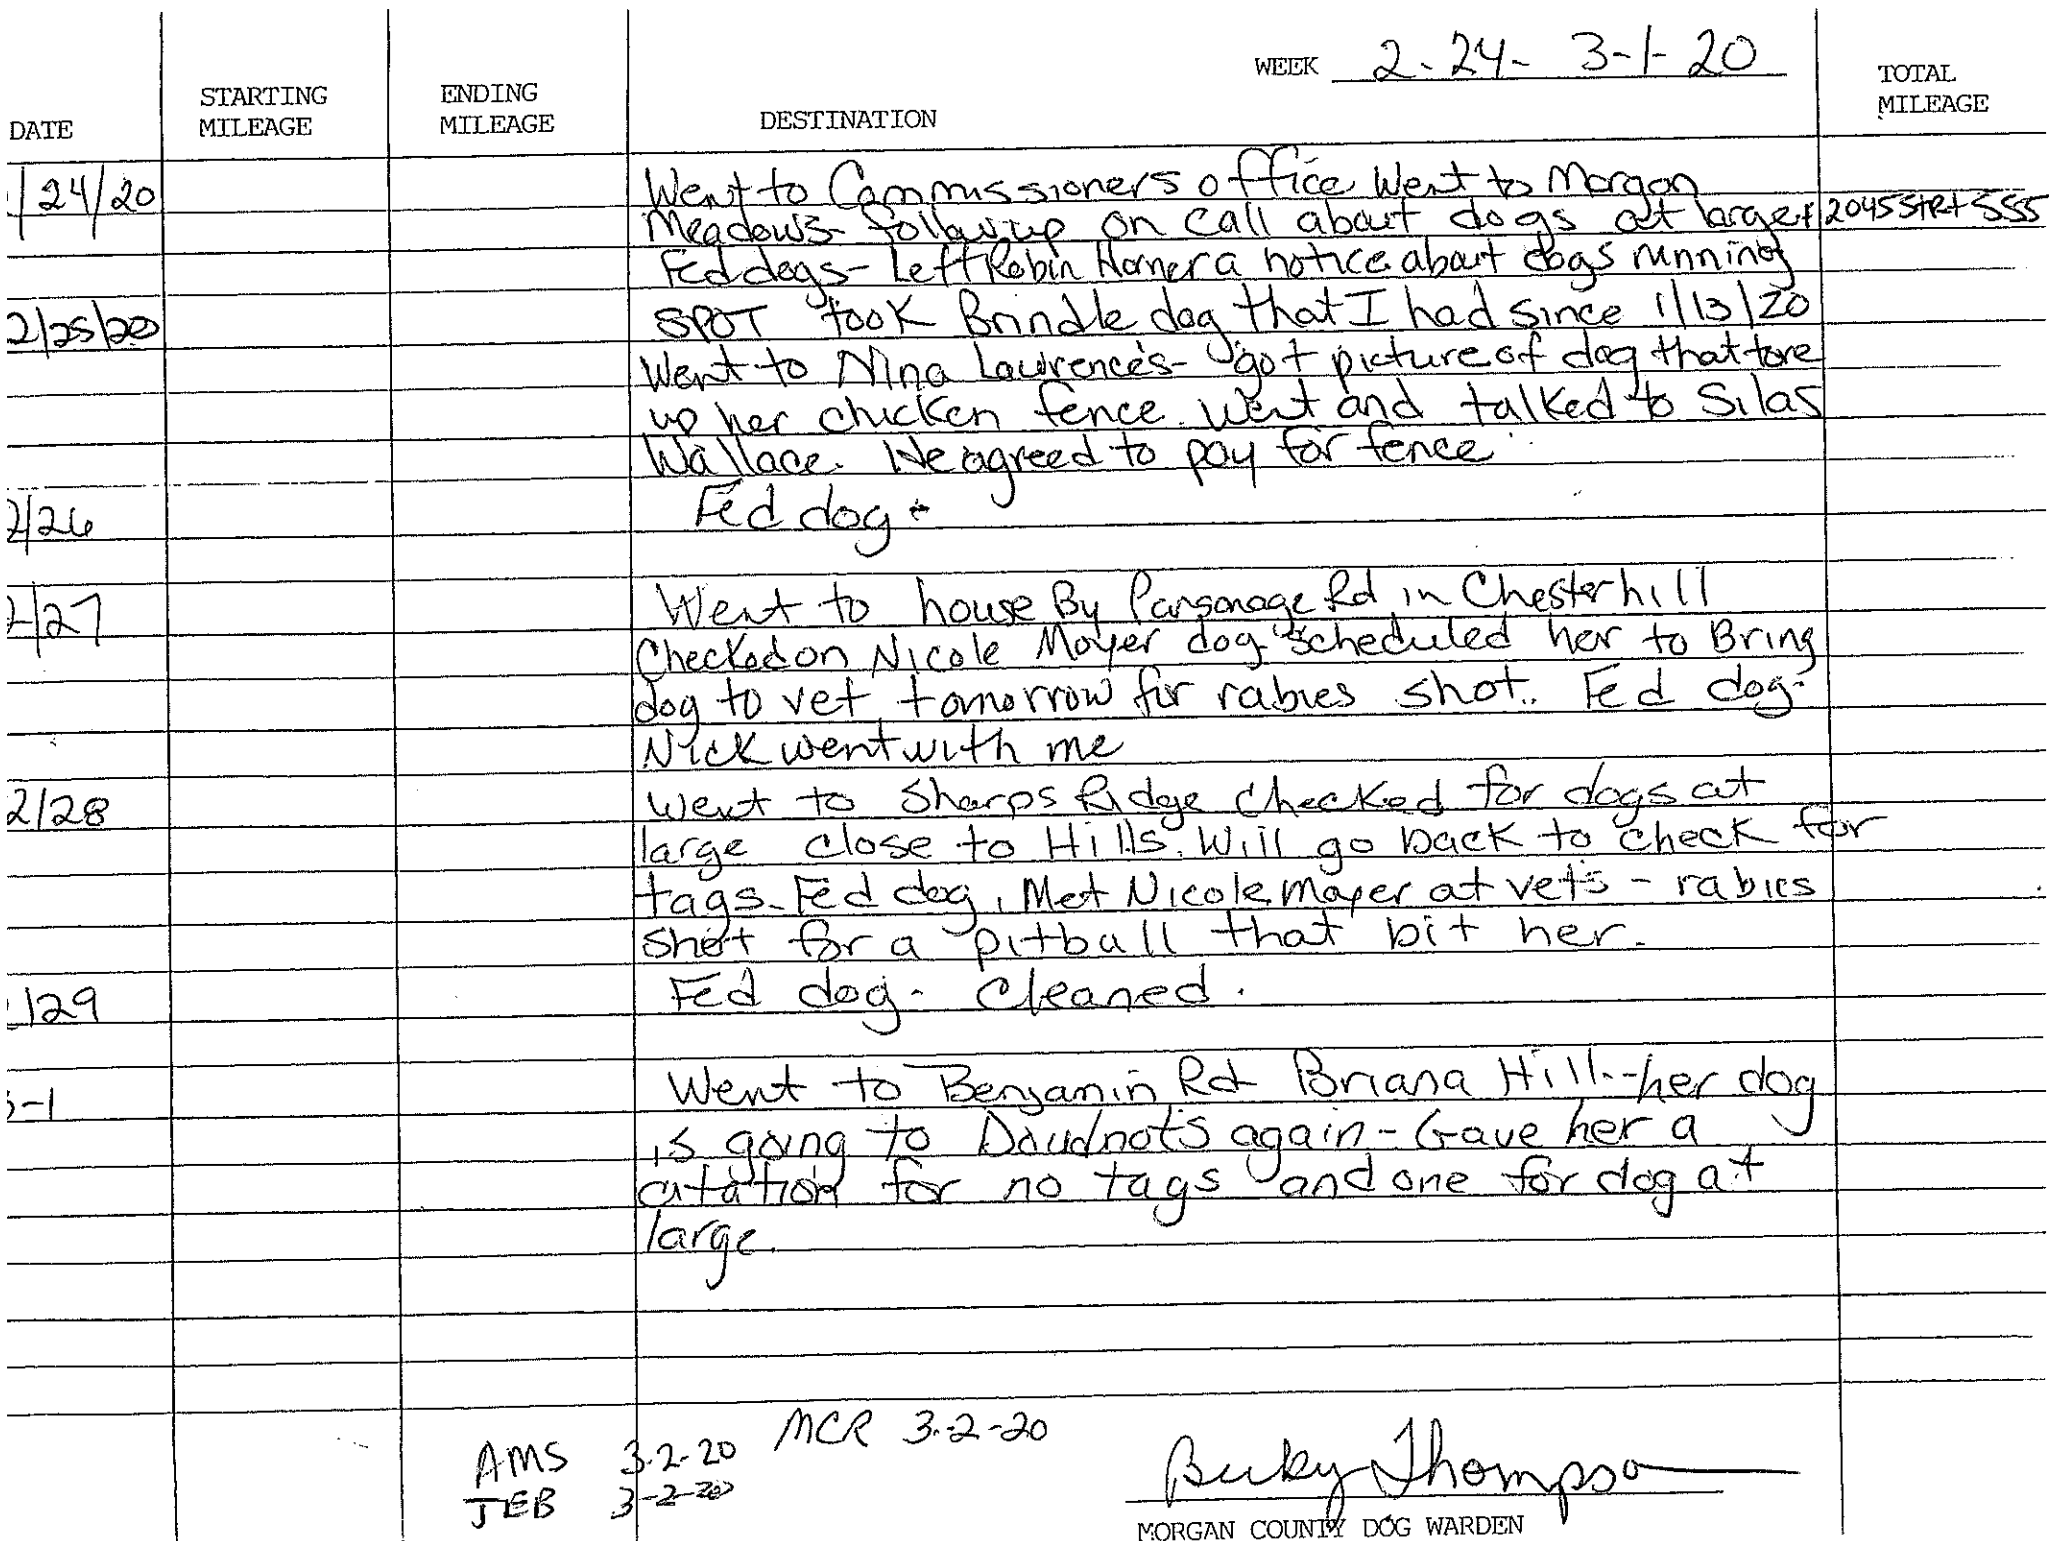 WEEK 2-24- 3-1-20
DATE STARTING MILEAGE ENDING MILEAGE DESTINATION TOTAL MILEAGE
/24/20 Went to Commissioners office Went to Morgan
Meadows- followup on call about dogs at large + 2045 StRt 555
Fed dogs- Left Robin Horner a notice about dogs running
2/25/20 SPOT took Brindle dog that I had since 1/13/20
Went to Nina Lawrence's- got picture of dog that tore
up her chicken fence. Went and talked to Silas
Wallace. He agreed to pay for fence
2/26 Fed dog
2/27 Went to house By Parsonage Rd in Chesterhill
Checked on Nicole Moyer dog. Scheduled her to Bring
dog to vet tomorrow for rabies shot. Fed dog.
Nick went with me
2/28 Went to Sharps Ridge Checked for dogs at
large close to Hills. Will go back to check for
tags. Fed dog. Met Nicole Moyer at vets - rabies
shot for a pitball that bit her.
/29 Fed dog. Cleaned.
-1 Went to Benjamin Rd Briana Hill--her dog
is going to again- Gave her a
citation for no tags and one for dog at
large.
MCR 3-2-20
AMS 3-2-20
JEB 3-2-20
Becky Thompson
MORGAN COUNTY DOG WARDEN